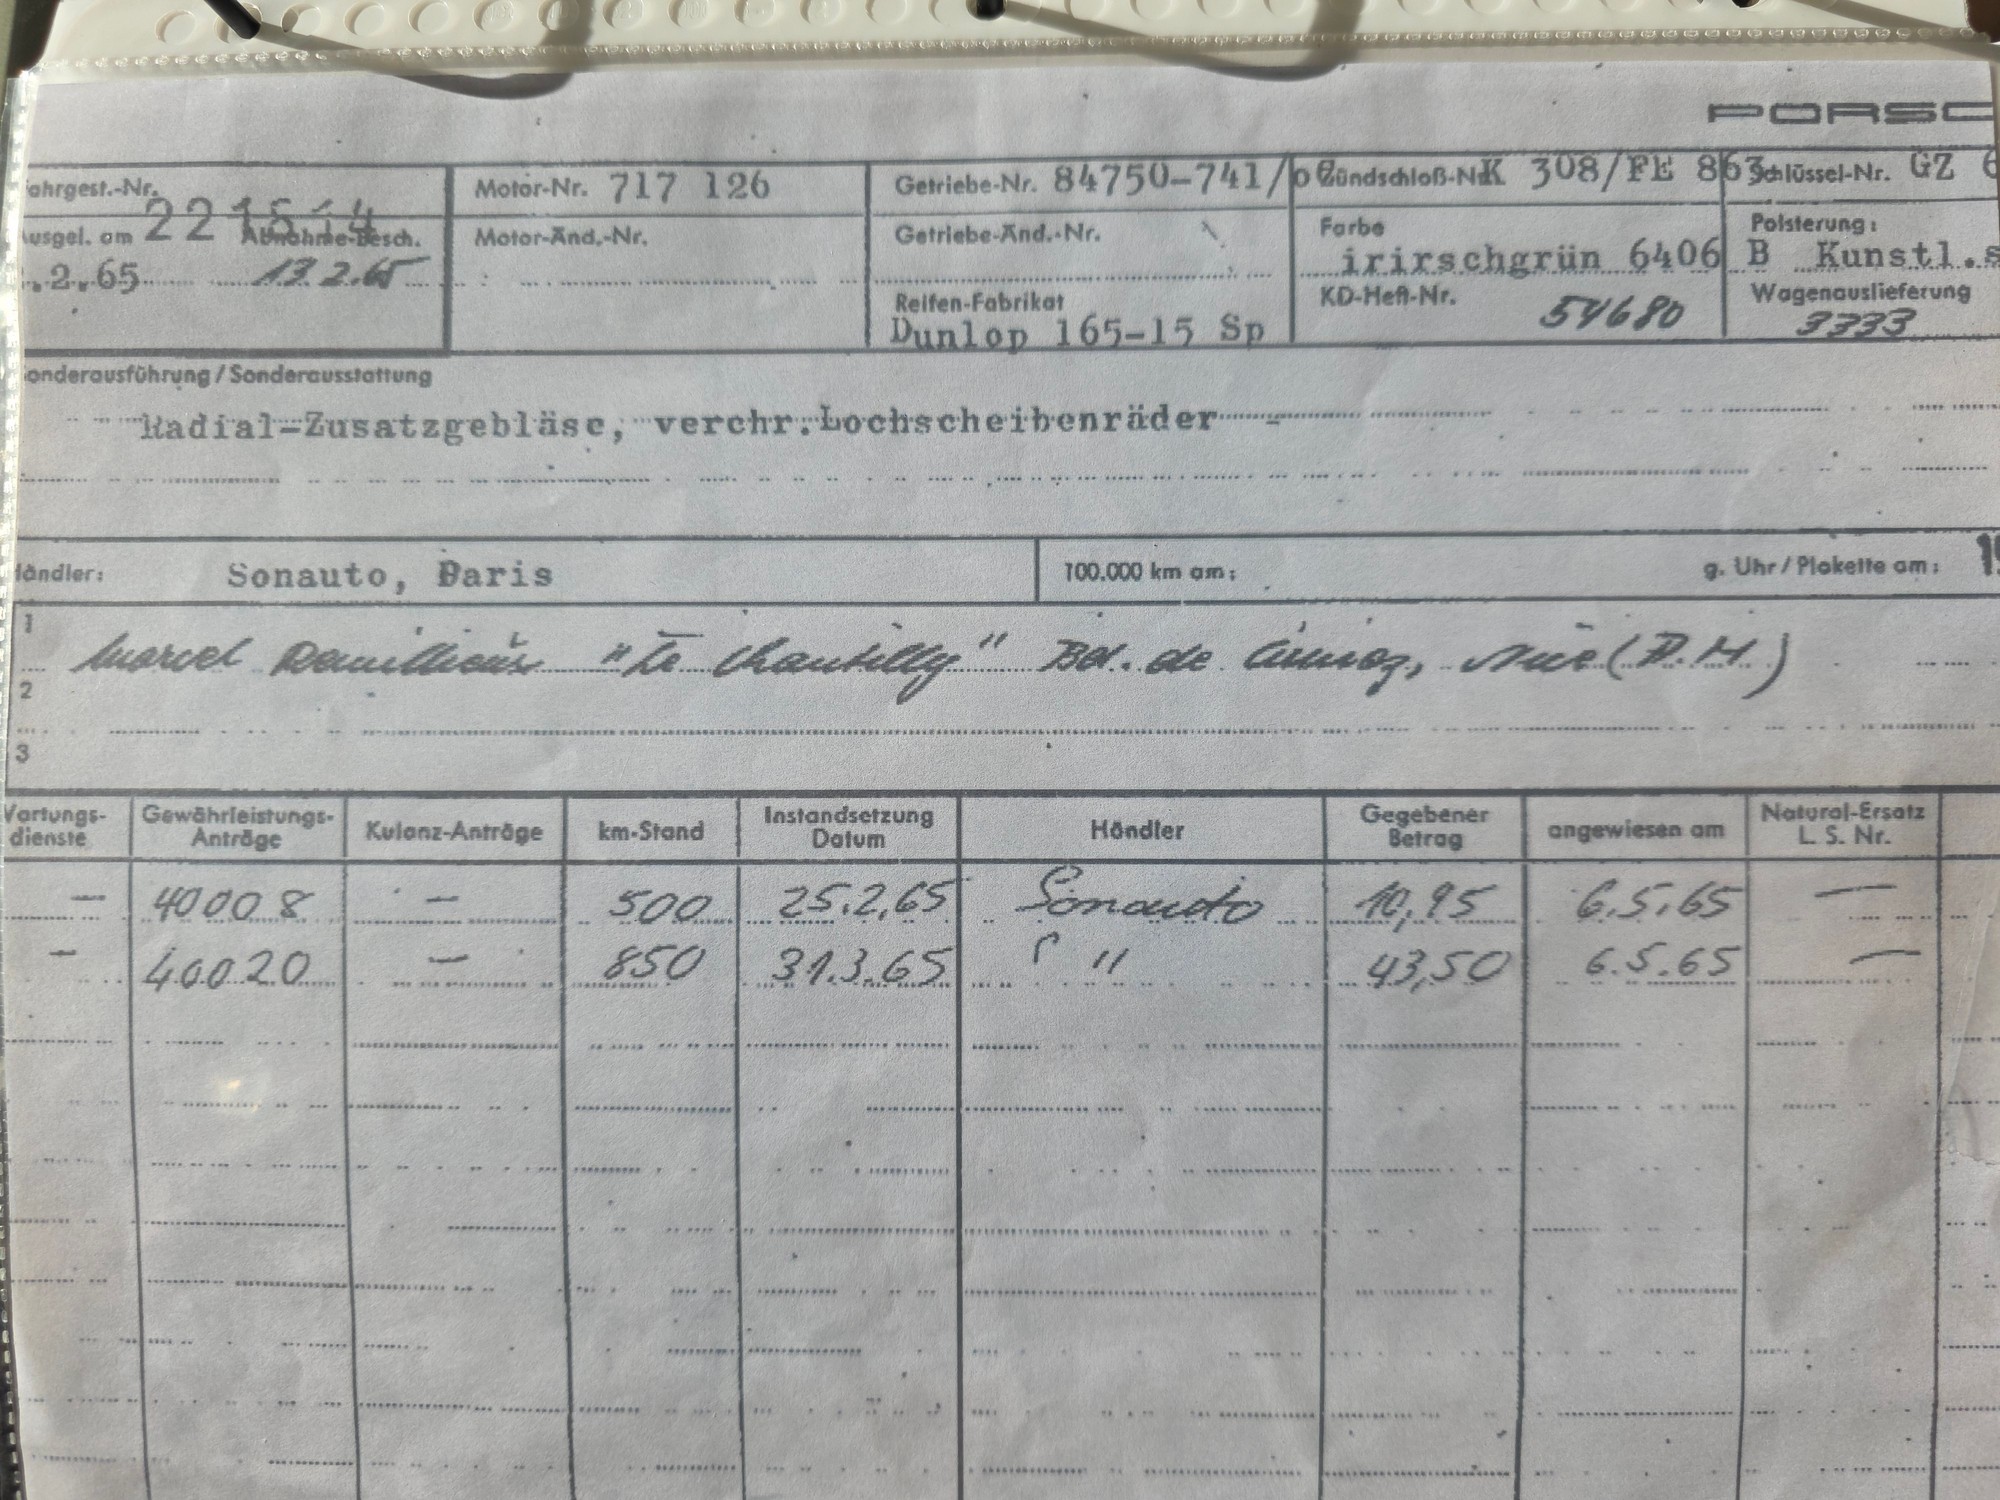 PORSC
ahrgest.-Nr. Motor-Nr. 717 126 Getriebe-Nr. 84750-741/ Zündschloß-Nr. K 308/FE 863 Schlüssel-Nr. GZ 6
221514
usgel. am Abnahme-Besch. Motor-Änd.-Nr. Getriebe-Änd.-Nr. Farbe Polsterung:
.2.65 13.2.65 irirschgrün 6406 B Kunstl.s
Reifen-Fabrikat KD-Heft-Nr. Wagenauslieferung
Dunlop 165-15 Sp 54680 3333
onderausführung/Sonderausstattung
Radial-Zusatzgebläse, verchr. Lochscheibenräder -
ändler: Sonauto, Paris 100.000 km am: g. Uhr/Plakette am: 19
1
Marcel "Le Chantilly" Bd. de Cimiez, Nice (A.M.)
2
3
Wartungs-dienste Gewährleistungs-Anträge Kulanz-Anträge km-Stand Instandsetzung Datum Händler Gegebener Betrag angewiesen am Natural-Ersatz L. S. Nr.
— 40008 — 500 25.2.65 Sonauto 10,95 6.5.65 —
— 40020 — 850 31.3.65 " 43,50 6.5.65 —